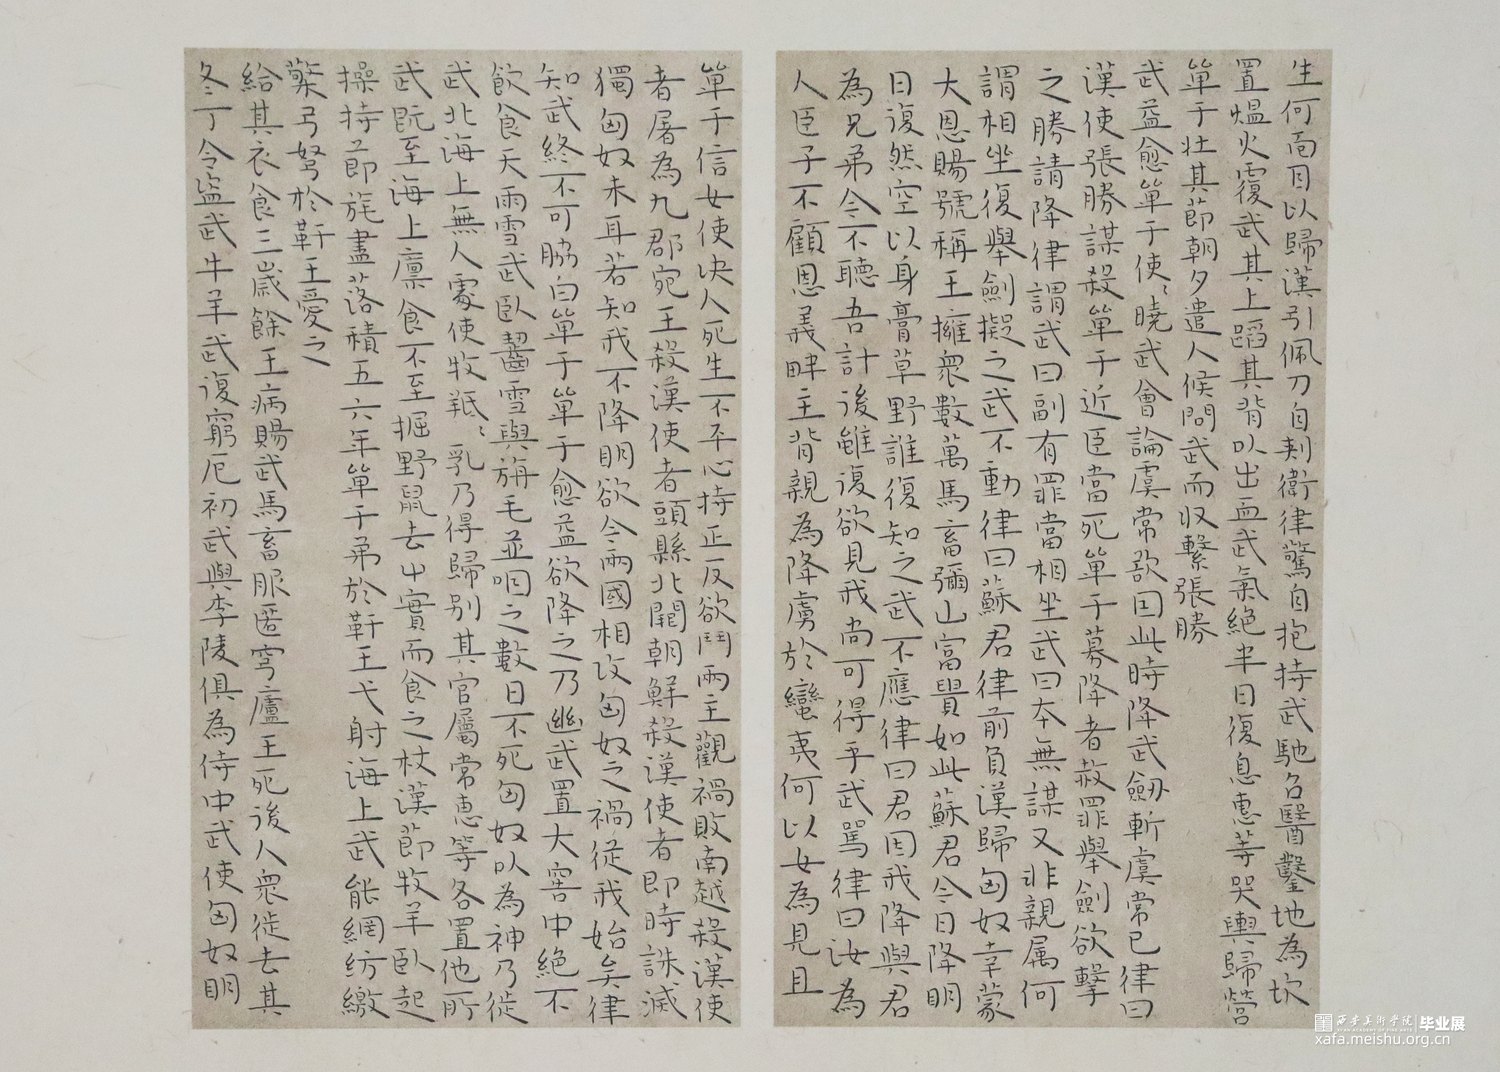 生何面目以歸漢引佩刀自刺衛律驚自抱持武馳召醫鑿地為坎
置煴火覆武其上蹈其背以出血武氣絕半日復息惠等哭輿歸營
單于壯其節朝夕遣人候問武而收繫張勝
武益愈單于使〻曉武會論虞常欲因此時降武劒斬虞常已律曰
漢使張勝謀殺單于近臣當死單于募降者赦罪舉劍欲擊
之勝請降律謂武曰副有罪當相坐武曰本無謀又非親屬何
謂相坐復舉劍擬之武不動律曰蘇君律前負漢歸匈奴幸蒙
大恩賜號稱王擁眾數萬馬畜彌山富貴如此蘇君今日降明
日復然空以身膏草野誰復知之武不應律曰君因我降與君
為兄弟今不聽吾計後雖復欲見我尚可得乎武罵律曰汝為
人臣子不顧恩義畔主背親為降虜於蠻夷何以女為見且
單于信女使決人死生不平心持正反欲鬥兩主觀禍敗南越殺漢使
者屠為九郡宛王殺漢使者頭縣北闕朝鮮殺漢使者即時誅滅
獨匈奴未耳若知我不降明欲令兩國相攻匈奴之禍從我始矣律
知武終不可脅白單于單于愈益欲降之乃幽武置大窖中絕不
飲食天雨雪武臥齧雪與旃毛並咽之數日不死匈奴以為神乃徙
武北海上無人處使牧羝〻乳乃得歸别其官屬常惠等各置他所
武既至海上廩食不至掘野鼠去屮實而食之杖漢節牧羊臥起
操持節旄盡落積五六年單于弟於靬王弋射海上武能網紡繳
檠弓弩於靬王愛之
給其衣食三歲餘王病賜武馬畜服匿穹廬王死後人眾徙去其
冬丁令盜武牛羊武復窮厄初武與李陵俱為侍中武使匈奴明
西安美術學院 毕业展
XI'AN ACADEMY OF FINE ARTS
xafa.meishu.org.cn